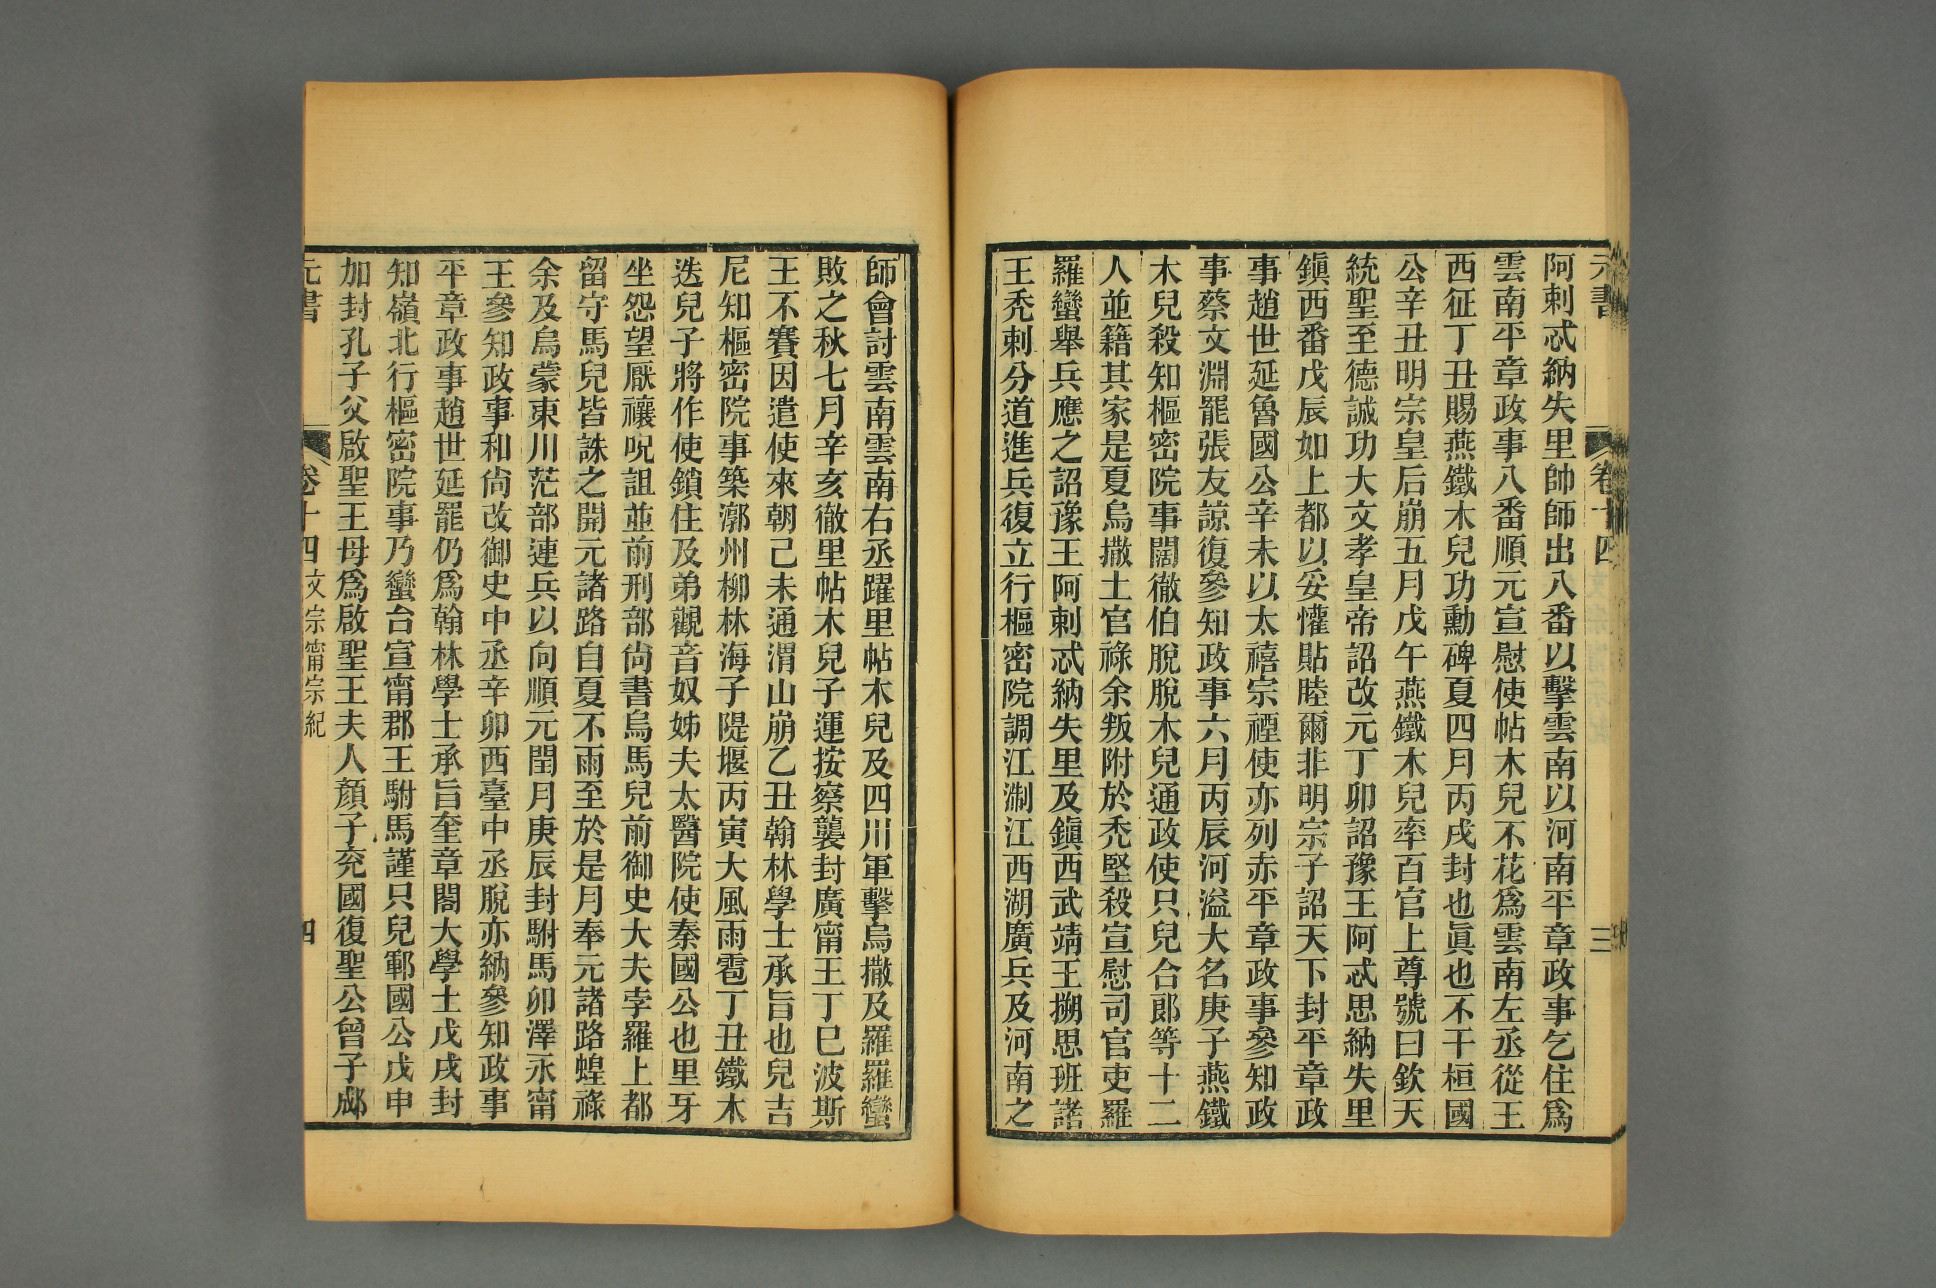 元書 卷十四 三
阿剌忒納失里帥師出八番以擊雲南以河南平章政事乞住爲
雲南平章政事八番順元宣慰使帖木兒不花爲雲南左丞從王
西征丁丑賜燕鐵木兒功勳碑夏四月丙戌封也眞也不干桓國
公辛丑明宗皇后崩五月戊午燕鐵木兒率百官上尊號曰欽天
統聖至德誠功大文孝皇帝詔改元丁卯詔豫王阿忒思納失里
鎭西番戊辰如上都以妥懽貼睦爾非明宗子詔天下封平章政
事趙世延魯國公辛未以太禧宗禋使亦列赤平章政事參知政
事蔡文淵罷張友諒復參知政事六月丙辰河溢大名庚子燕鐵
木兒殺知樞密院事闊徹伯脫脫木兒通政使只兒合郞等十二
人並籍其家是夏烏撒土官祿余叛附於禿堅殺宣慰司官吏羅
羅蠻舉兵應之詔豫王阿剌忒納失里及鎭西武靖王搠思班諸
王禿剌分道進兵復立行樞密院調江浙江西湖廣兵及河南之
師會討雲南雲南右丞躍里帖木兒及四川軍擊烏撒及羅羅蠻
敗之秋七月辛亥徹里帖木兒子運按察襲封廣甯王丁巳波斯
王不賽因遣使來朝己未通渭山崩乙丑翰林學士承旨也兒吉
尼知樞密院事築漷州柳林海子隄堰丙寅大風雨雹丁丑鐵木
迭兒子將作使鎖住及弟觀音奴姊夫太醫院使秦國公也里牙
坐怨望厭禳呪詛並前刑部尙書烏馬兒前御史大夫孛羅上都
留守馬兒皆誅之開元諸路自夏不雨至於是月奉元諸路蝗祿
余及烏蒙東川茫部連兵以向順元閏月庚辰封駙馬卯澤永甯
王參知政事和尙改御史中丞辛卯西臺中丞脫亦納參知政事
平章政事趙世延罷仍爲翰林學士承旨奎章閣大學士戊戌封
知嶺北行樞密院事乃蠻台宣甯郡王駙馬謹只兒鄆國公戊申
加封孔子父啟聖王母爲啟聖王夫人顏子兗國復聖公曾子郕
元書 卷十四 文宗甯宗紀 四